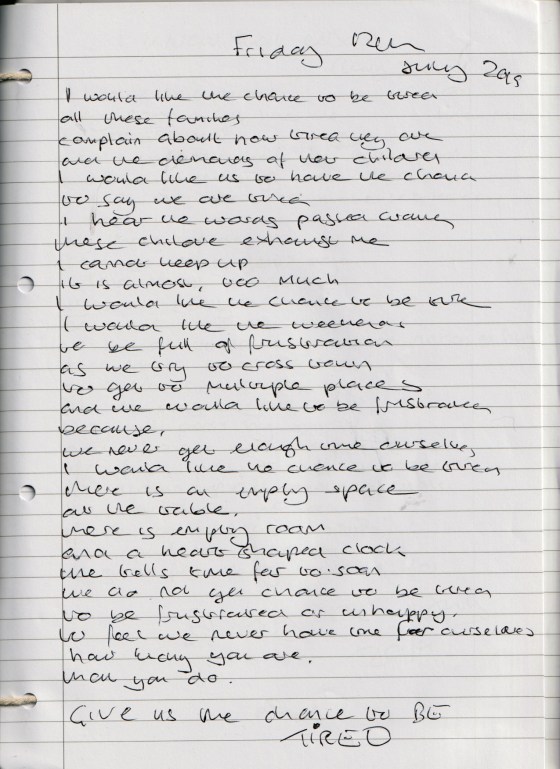 Friday
July 2
I would like the chance to be tired
all these families
complain about how tired they are
and the demands of their children
I would like us to have the chance
to say we are tired
I hear the words passed around
these children exhaust me
I cannot keep up
it is almost, too much
I would like the chance to be tired
I would like the weekends
to be full of frustration
as we try to cross town
to get to multiple places
and we would like to be frustrated
because,
we never get enough time ourselves
I would like the chance to be tired
there is an empty space
at the table.
there is empty room
and a heart shaped clock
the tells time far to soon
we do not get chance to be tired
to be frustrated or unhappy.
to feel we never have time for ourselves
how lucky you are.
that you do.
Give us the chance to BE
TIRED